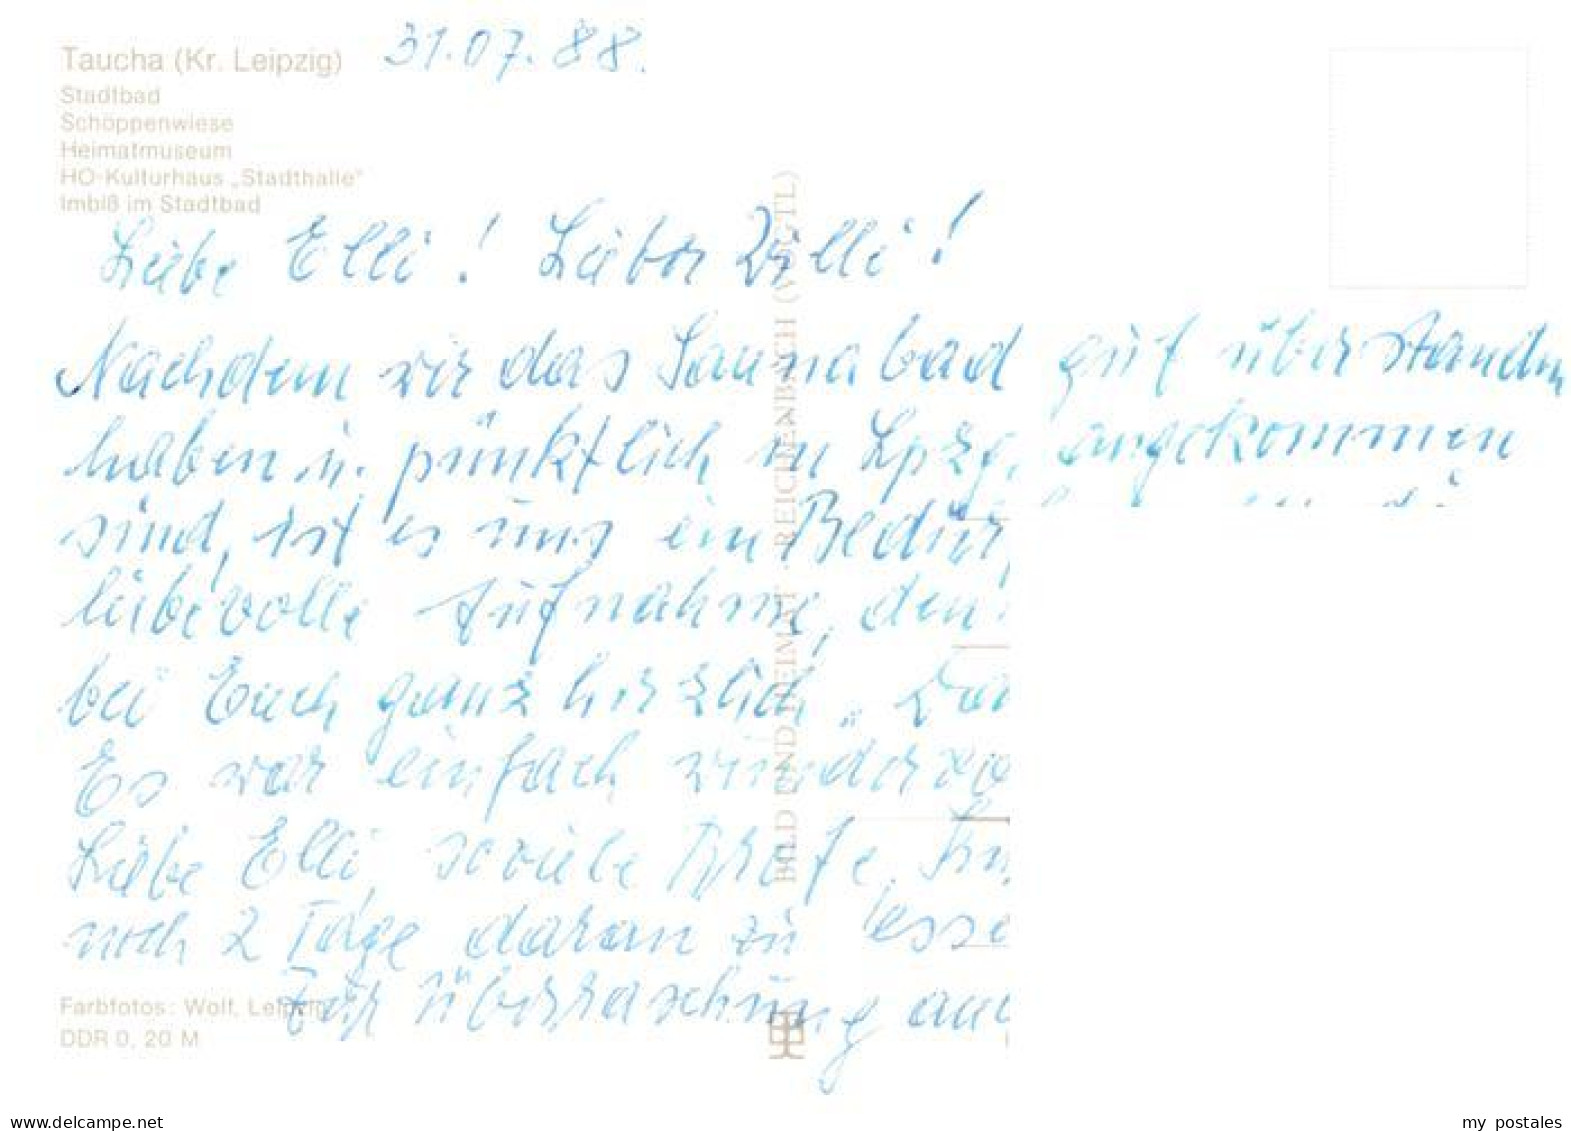 Taucha (Kr. Leipzig) 31.07.88.
Stadtbad
Schöppenwiese
Heimatmuseum
HO-Kulturhaus „Stadthalle"
Imbiß im Stadtbad
Liebe Elli! Lieber Willi!
Nachdem wir das Saunabad gut überstanden
haben u. pünktlich in Lpzg. angekommen
sind, ist es uns ein Bedür
liebevolle Aufnahme, den
bei Euch ganz herzlich
Es war einfach
Liebe Elli, soviele
noch 2 Tage daran zu esse
Zur Überraschung auc
Farbfotos: Wolf, Leipzig
DDR 0, 20 M
BILD UND HEIMAT · REICHENBACH (VOGTL)
www.delcampe.net
my_postales